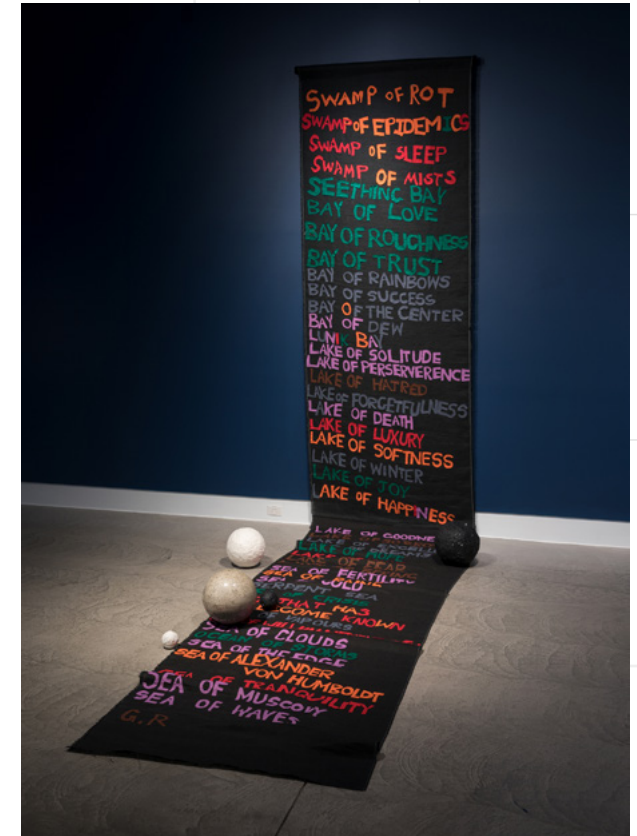 SWAMP OF ROT
SWAMP OF EPIDEMICS
SWAMP OF SLEEP
SWAMP OF MISTS
SEETHING BAY
BAY OF LOVE
BAY OF ROUGHNESS
BAY OF TRUST
BAY OF RAINBOWS
BAY OF SUCCESS
BAY OF THE CENTER
BAY OF DEW
LUNIK BAY
LAKE OF SOLITUDE
LAKE OF PERSERVERENCE
LAKE OF HATRED
LAKE OF FORGETFULNESS
LAKE OF DEATH
LAKE OF LUXURY
LAKE OF SOFTNESS
LAKE OF WINTER
LAKE OF JOY
LAKE OF HAPPINESS
LAKE OF GOODNE
LAKE OF
LAKE OF HOPE
OF FEAR
SEA OF FERTILITY
SEA OF
SEA COLD
SERPENT SEA
OF CRISIS
THAT HAS
BECOME KNOWN
OF VAPOURS
OF CLOUDS
OCEAN OF STORMS
SEA OF THE EDGE
SEA OF ALEXANDER
VON HUMBOLDT
SEA OF TRANQUILITY
SEA OF MUSCOVY
SEA OF WAVES
G.R